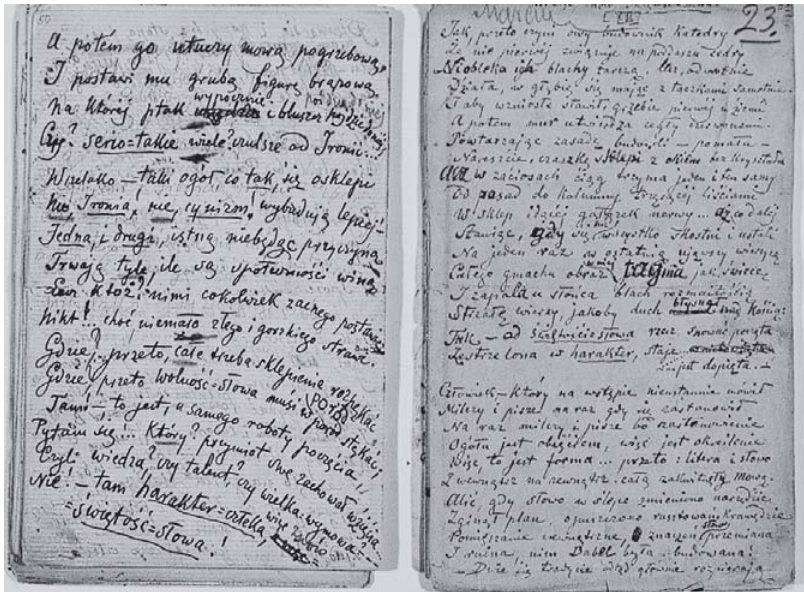 50
A potém go uturzy mową pogrzebową
I postawi mu grubą figurę brązową
wypocznie
Na której ptak i bluszcz
Czyż? serio=takie wiele? czulsze od Ironii...
Wszelako — taki ogół co tak, się osklepi
Nie, Ironia, nie, cynizm! wybudują lepiej!—
Jedna, i druga, istną niebędąc przyczyną
Trwają tyle, ile są spotworność winą
Lecz któż? nimi cokolwiek zacnego postawi?
Nikt!.. choć niemało złego i gorzkiego strawi.
Gdzież? przeto, całe trzeba sklepienie rozpękać
Gdzież? przeto Wolność=Słowa musi w porę stękać,
Tam! — to jest, u samego roboty poczęcia,
Pytam się!... Który? przymiot
Czyli wiedza? czy talent, czy wielka=wymowa —
Nie! — tam harakter=człeka, więc
=świętość=słowa!
23.
Tak, przeto czyni ów budownik Katedry
Że nie pierwéj związuje na poddaszu cedry
Nie obleka ich blachy tarczą, lecz, odważnie
Działa, w głębi się mając z taczkami
I aby wzniosłe stawić grzebie pierwéj w ziemi
A potem mur utwierdza cegły
Powtarzając zasadę budowli — pomału —
Nareszcie, czaszkę sklepi z okiem bez kryształu
w zaciosach ciąg trzyma jeden i ten sam
Od posad do kolumny liściami
W sklep idącej gałązek nerwy... aż co daléj
Stawiąc, gdy się wszystko skostni i ustali
Na jeden raz w ostatnią ująwszy wiązę
Całego gmachu obraz jak świece
I zapala u słońca blach rozmaitością
Strzałę wieży, jakoby duch błysnął
Tak — od świętości słowa rzecz snować poczęta
Zestrzelona w harakter, staje
jest dopięta. —
Człowiek — który na wstępie nieustannie mówił
Milczy i pisze na raz gdy się zastanowił
Na raz milczy i pisze bo zastanowienie
Ogółu jest obejściem, więc jest określenie
Więc, to jest forma... przeto: litera i słowo
Z wewnątrz na zewnątrz, całą zakwitnęły mową.
Alić, gdy słowo w ślepe zmieniono narzędzie
Zginął plan, opuszczono rusztowań krawędzie
Pomięszanie zewnętrzne, znaczeń słów przemiana
I ruina, nim Babel była — budowana!
— Duże się tradycje odtąd głównie rozpierzchają